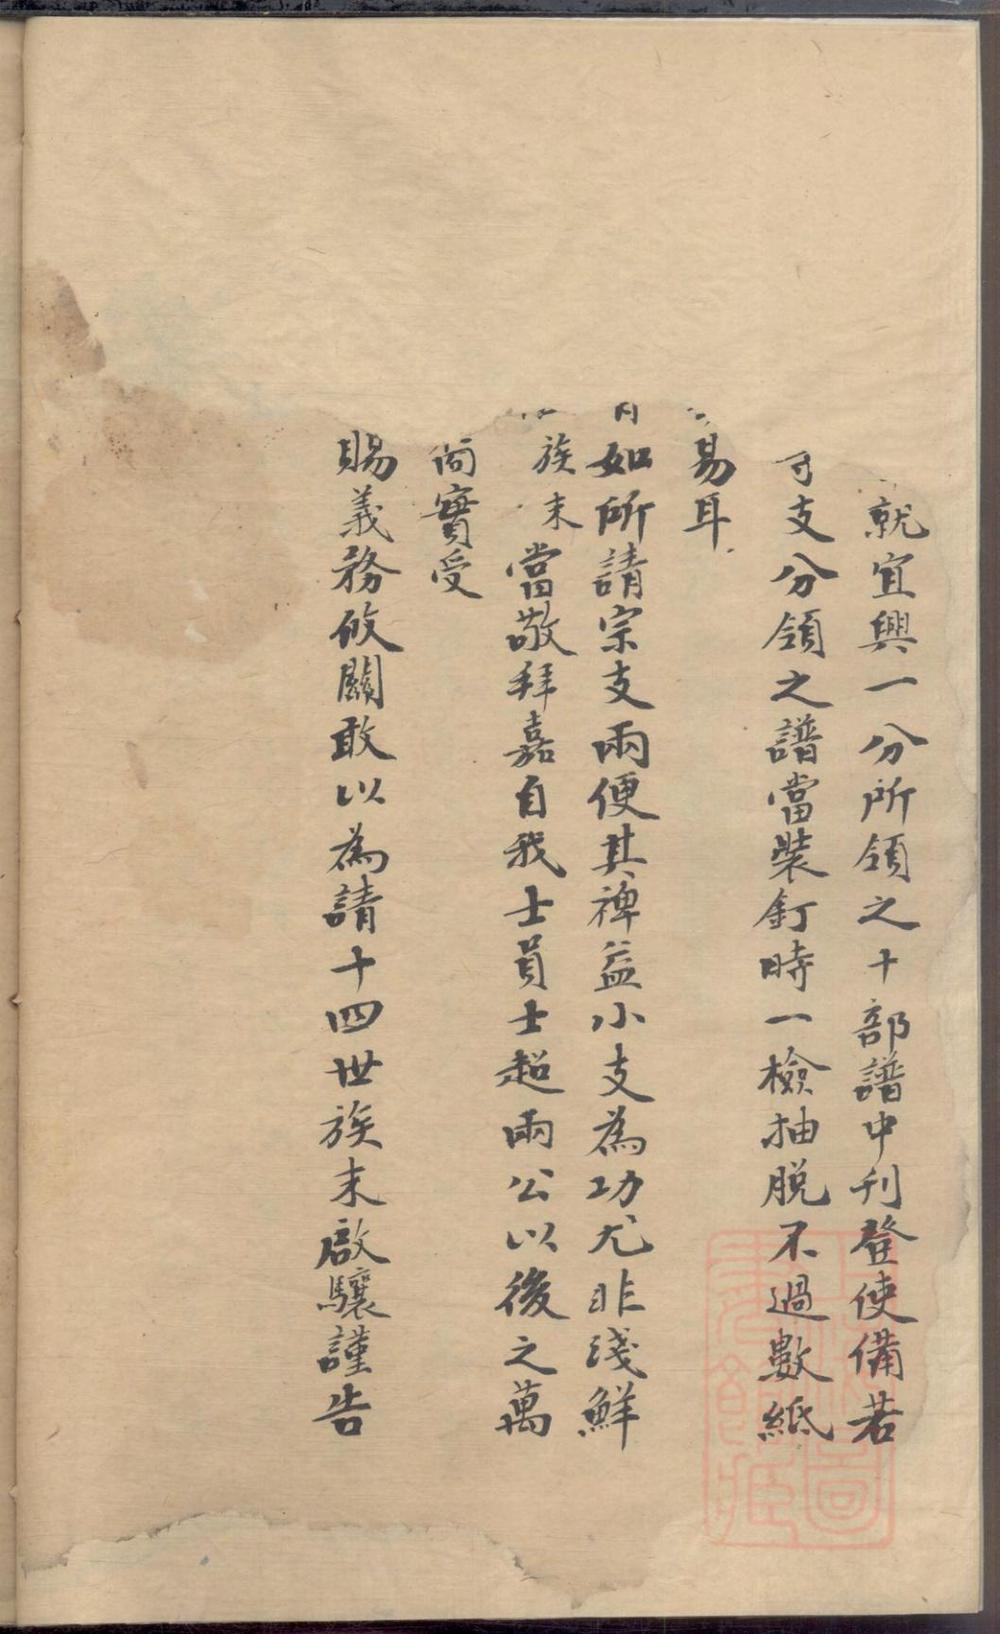 就宜興一分所領之十部譜中刋登使備若
可支分領之譜當裝釘時一檢抽脱不過數紙
易耳
如所請宗支兩便其裨益小支為功尤非淺鮮
族末當敬拜嘉自我士員士超兩公以後之萬
實受
賜義務攸關敢以為請十四世族末啟驤謹告